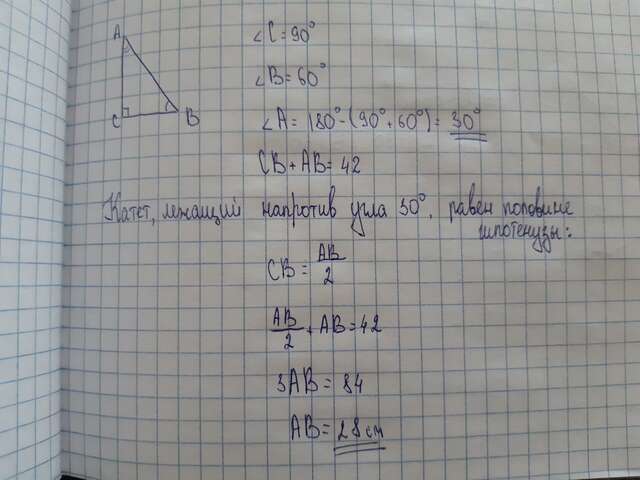 A
C
B
∠C = 90°
∠B = 60°
∠A = 180° - (90° + 60°) = 30°
CB + AB = 42
Катет, лежащий напротив угла 30°, равен половине
гипотенузы:
CB = AB/2
AB/2 + AB = 42
3AB = 84
AB = 28 см